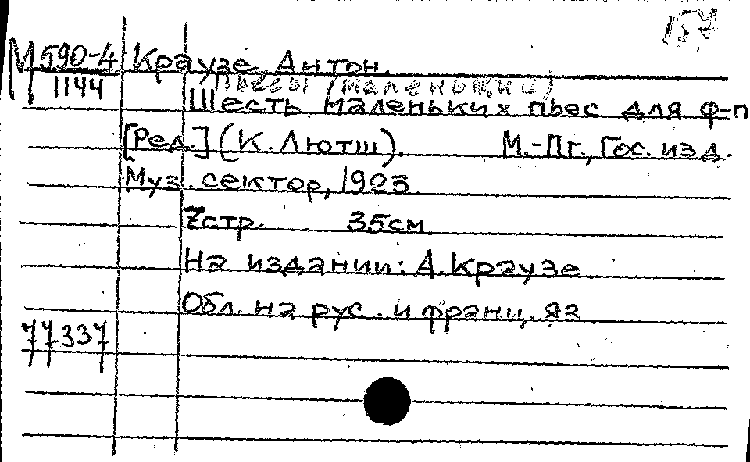 157
М 590-4 Краузе, Антон.
1144 Пьесы (маленькие)
Шесть маленьких пьес для ф-п
[Ред.] (К. Лютш). М.-Пг., Гос. изд.
Муз. сектор, 1923.
7стр. 35см
На издании: А. Краузе
Обл. на рус. и франц. яз
77337